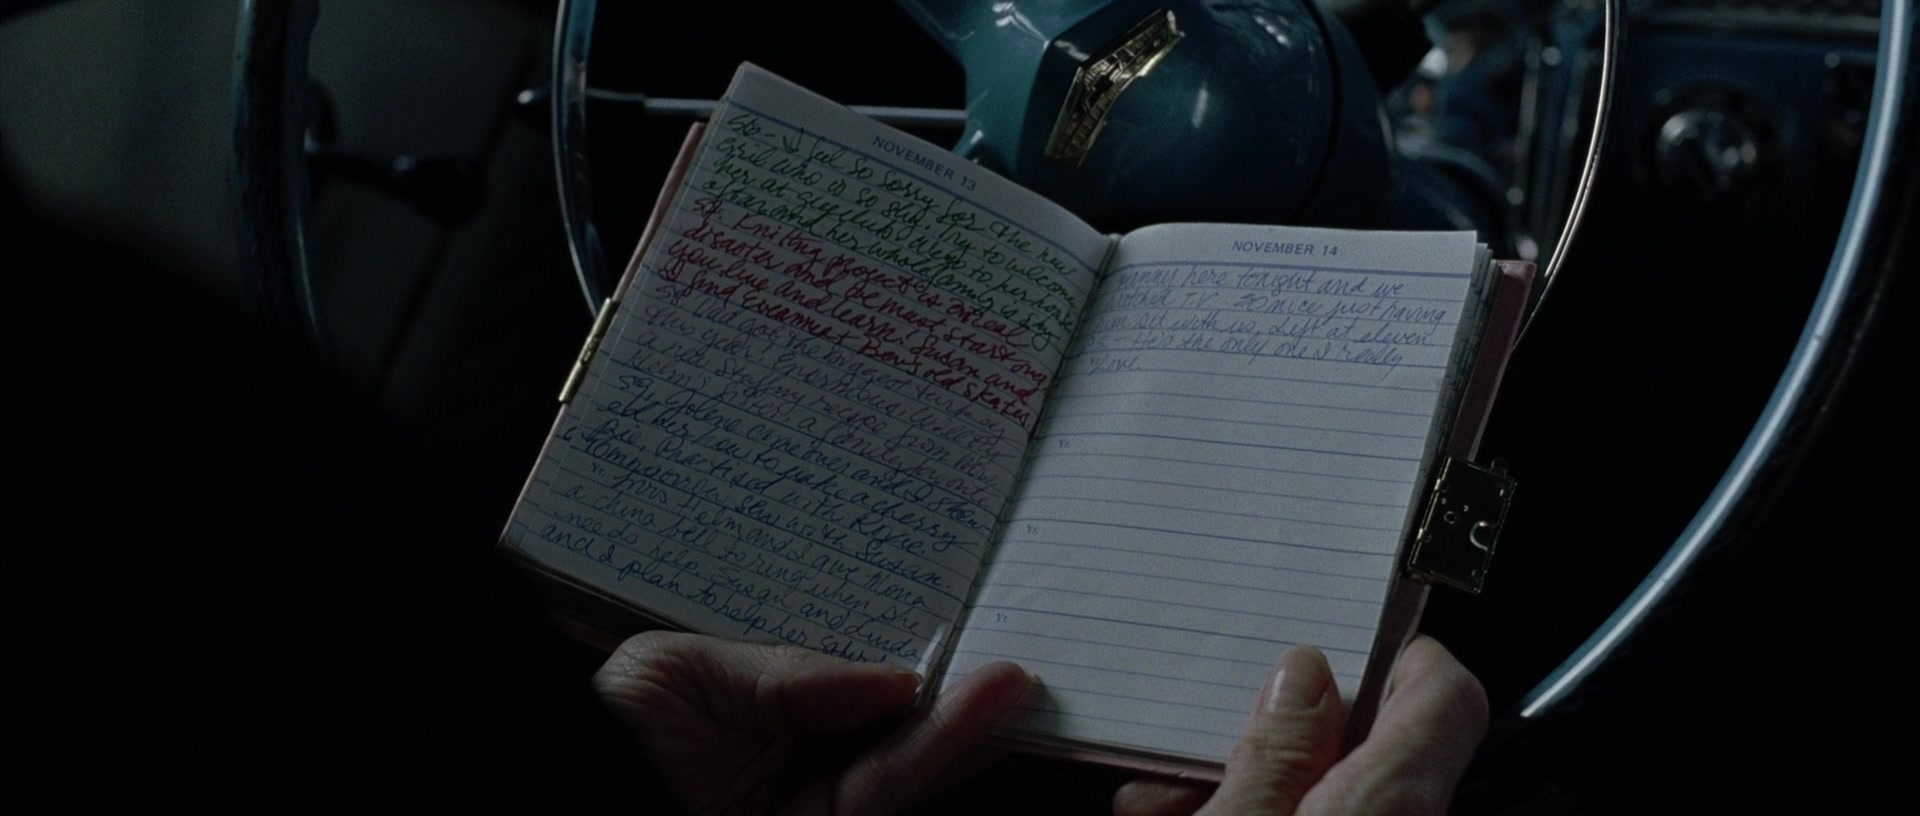 NOVEMBER 13
I feel so sorry for the new
girl who is so shy. Try to welcome
her at
and her whole family is shy
Knitting project is a real
disaster and we must start over
you live and learn! Susan and
I find Bev's old skates
Dad got the biggest turkey
this year! Enormous.
a new stuffing recipe from Mrs.
Helm's a family favorite
59. Jolene came over and I show
ed her how to make a cherry
pie. Practised with Roxie.
Tomorrow sew with Susan.
Yr. Mrs. Helm and I gave Mona
a china bell to ring when she
needs help. Susan and Linda
and I plan to help her
NOVEMBER 14
here tonight and we
watched T.V. So nice just having
him sit with us. Left at eleven
He's the only one I really
love.
Yr.
Yr.
Yr.